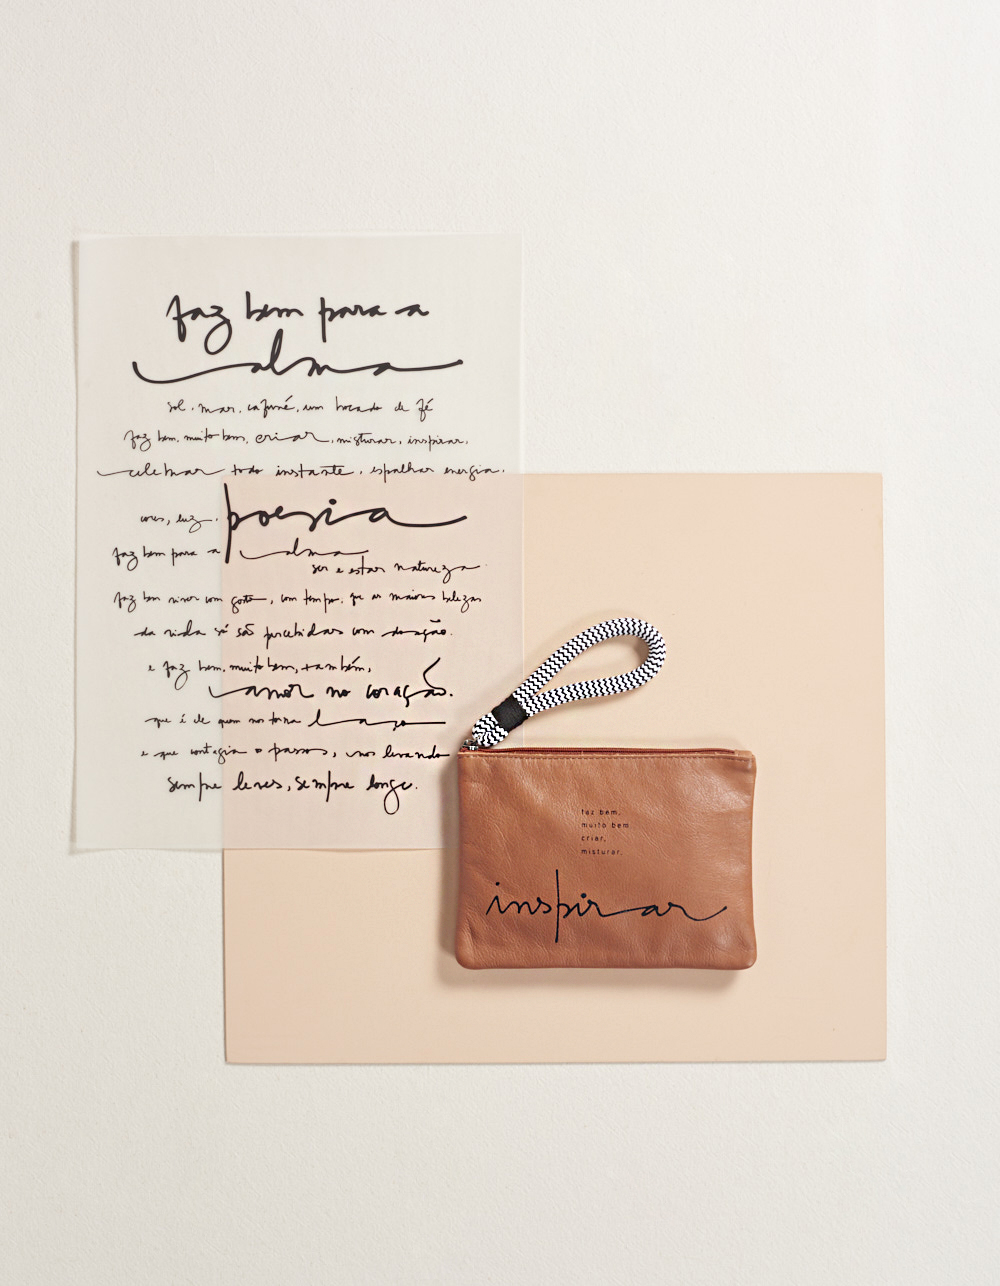 faz bem para a
alma
sol, mar, cafuné, um bocado de fé
faz bem, muito bem, criar, misturar, inspirar,
celebrar todo instante, espalhar energia,
cores, luz, poesia
faz bem para a alma
ser e estar natureza
faz bem viver com gosto, com tempo, que as maiores belezas
da vida só são percebidas com doação.
e faz bem, muito bem, também,
amor no coração.
que é de quem nos torna laço
e que contagia o passo, nos levando
sempre leves, sempre longe.
faz bem,
muito bem
criar,
misturar,
inspirar